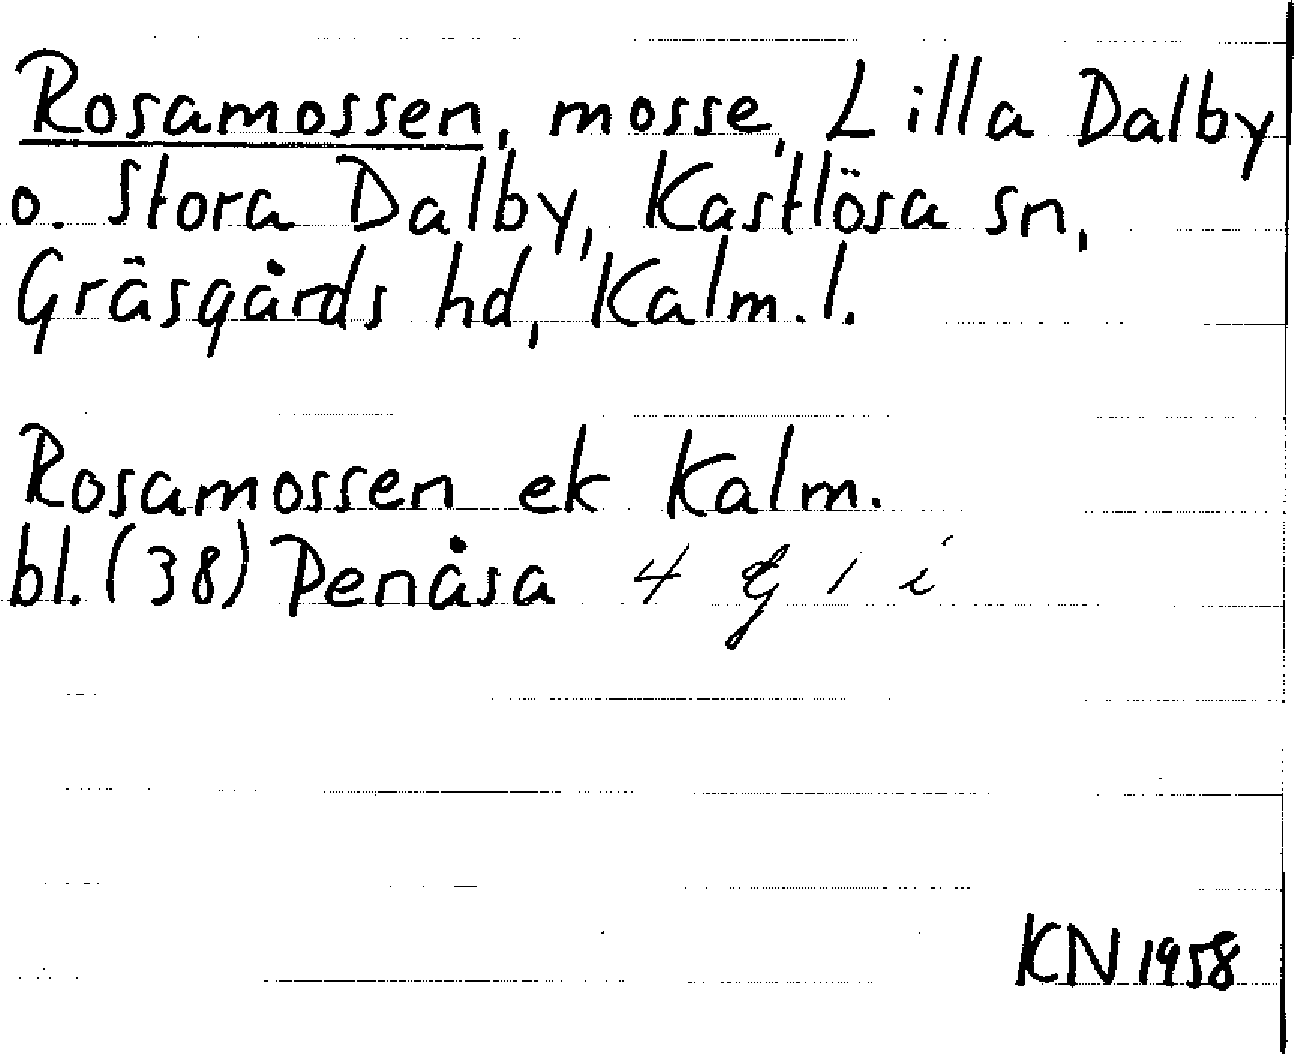 Rosamossen, mosse, Lilla Dalby
o. Stora Dalby, Kastlösa sn,
Gräsgårds hd, Kalm. l.
Rosamossen ek Kalm.
bl. (38) Penåsa 4 g 1 i
KN 1958